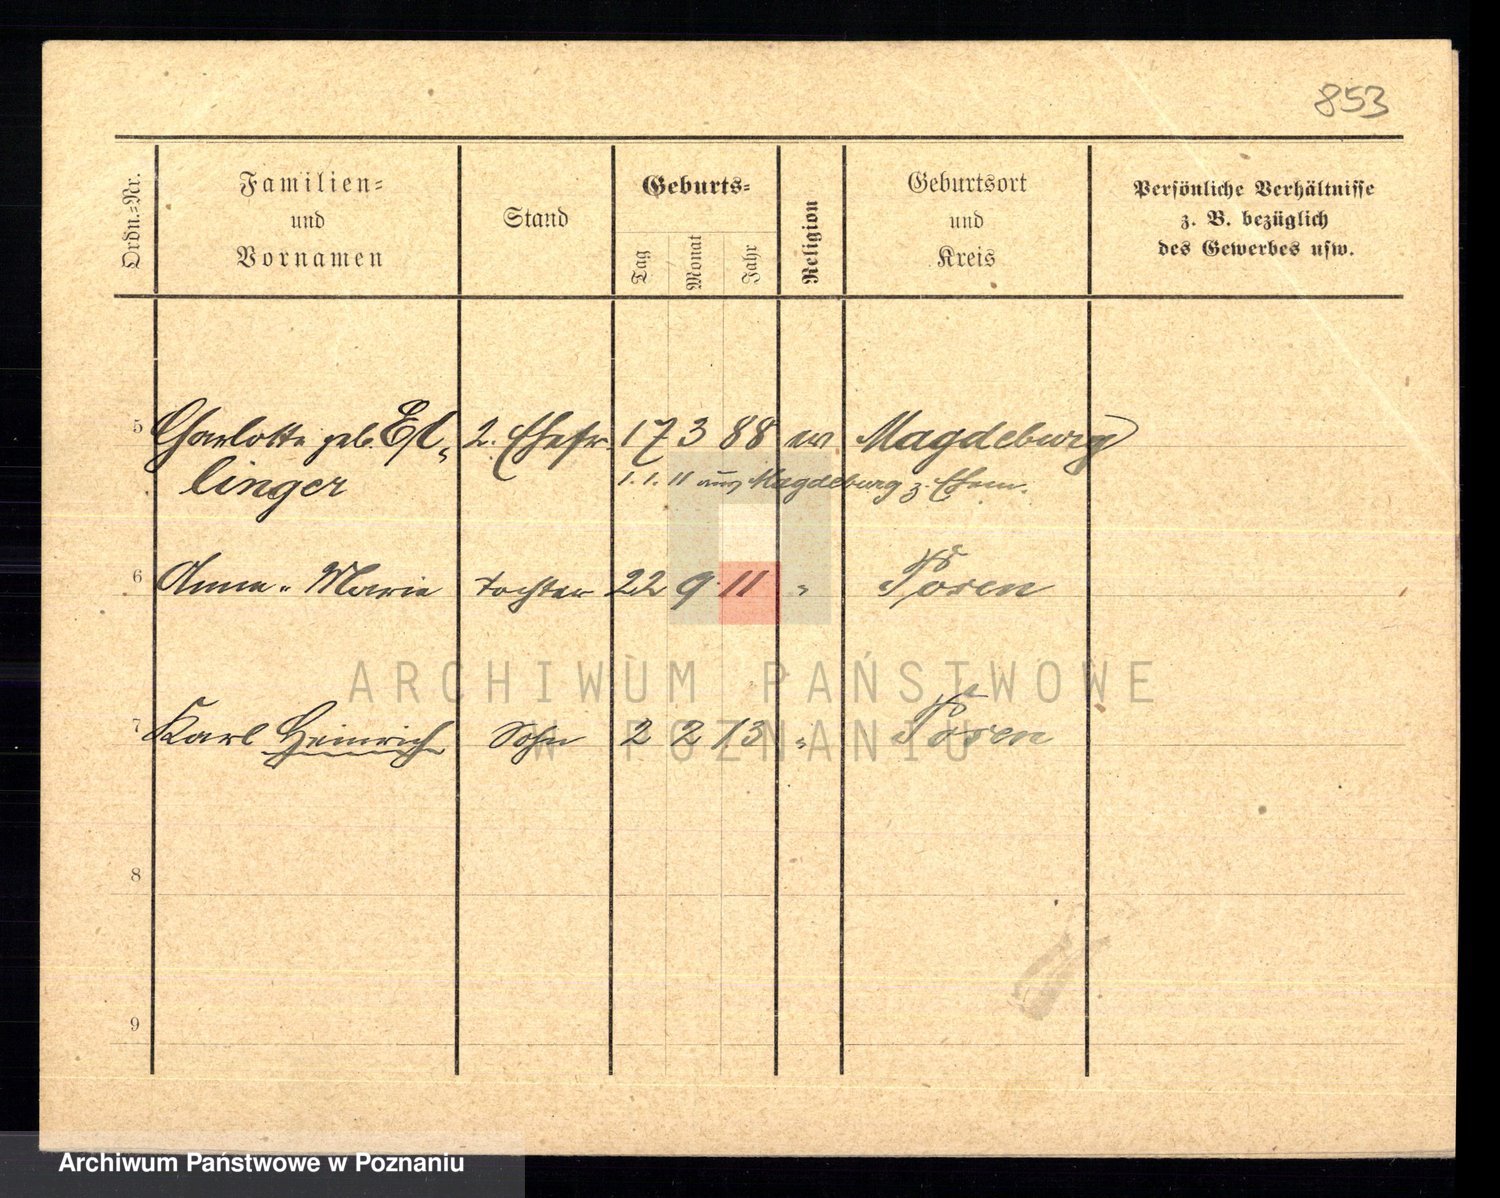 853
Ordn.-Nr.
Familien- und Vornamen
Stand
Geburts-
Tag
Monat
Jahr
Religion
Geburtsort und Kreis
Persönliche Verhältnisse
z. B. bezüglich
des Gewerbes usw.
5 Charlotte geb. 2. Ehefr. 17 3 88 ev Magdeburg
linger 1. 1. 11 aus Magdeburg z.
6 Anna-Marie Tochter 22 9. 11 " Posen
7 Karl Heinrich Sohn 2 2 13 " Posen
8
9
ARCHIWUM PAŃSTWOWE
W POZNANIU
Archiwum Państwowe w Poznaniu